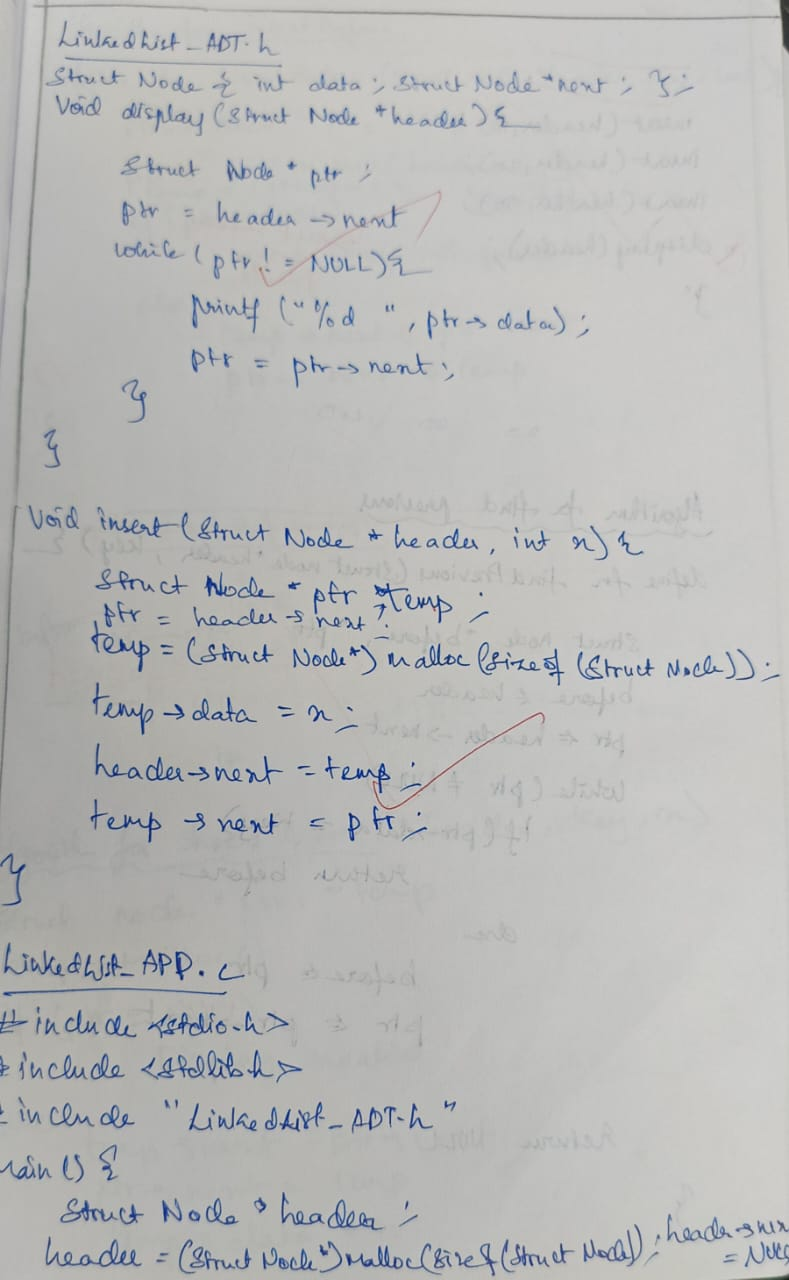 LinkedList_ADT.h
Struct Node { int data ; Struct Node *next ; } ;
Void display (Struct Node *header) {
Struct Node * ptr ;
ptr = header → next
while ( ptr != NULL) {
printf ("%d ", ptr → data) ;
ptr = ptr → next ;
}
}
Void insert (Struct Node * header, int x) {
Struct Node * ptr, *temp ;
ptr = header → next ;
temp = (Struct Node*) malloc (sizeof (Struct Node)) ;
temp → data = x ;
header → next = temp ;
temp → next = ptr ;
}
LinkedList_APP. c
# include <stdio.h>
# include <stdlib.h>
include "LinkedList_ADT.h"
main () {
Struct Node * header ;
header = (Struct Node*) malloc (sizeof (Struct Node)) ; header →
= NULL